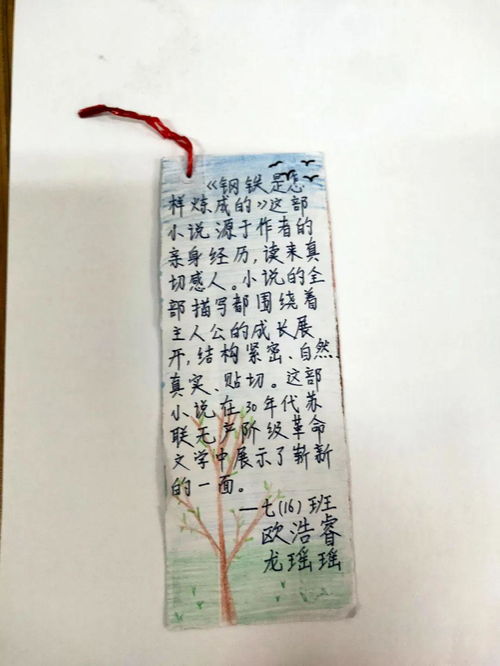 《钢铁是怎
样炼成的》这部
小说源于作者的
亲身经历，读来真
切感人。小说的全
部描写都围绕着
主人公的成长展
开，结构紧密、自然、
真实、贴切。这部
小说在30年代苏
联无产阶级革命
文学中展示了崭新
的一面。
—七(16)班
欧浩睿
龙瑶瑶